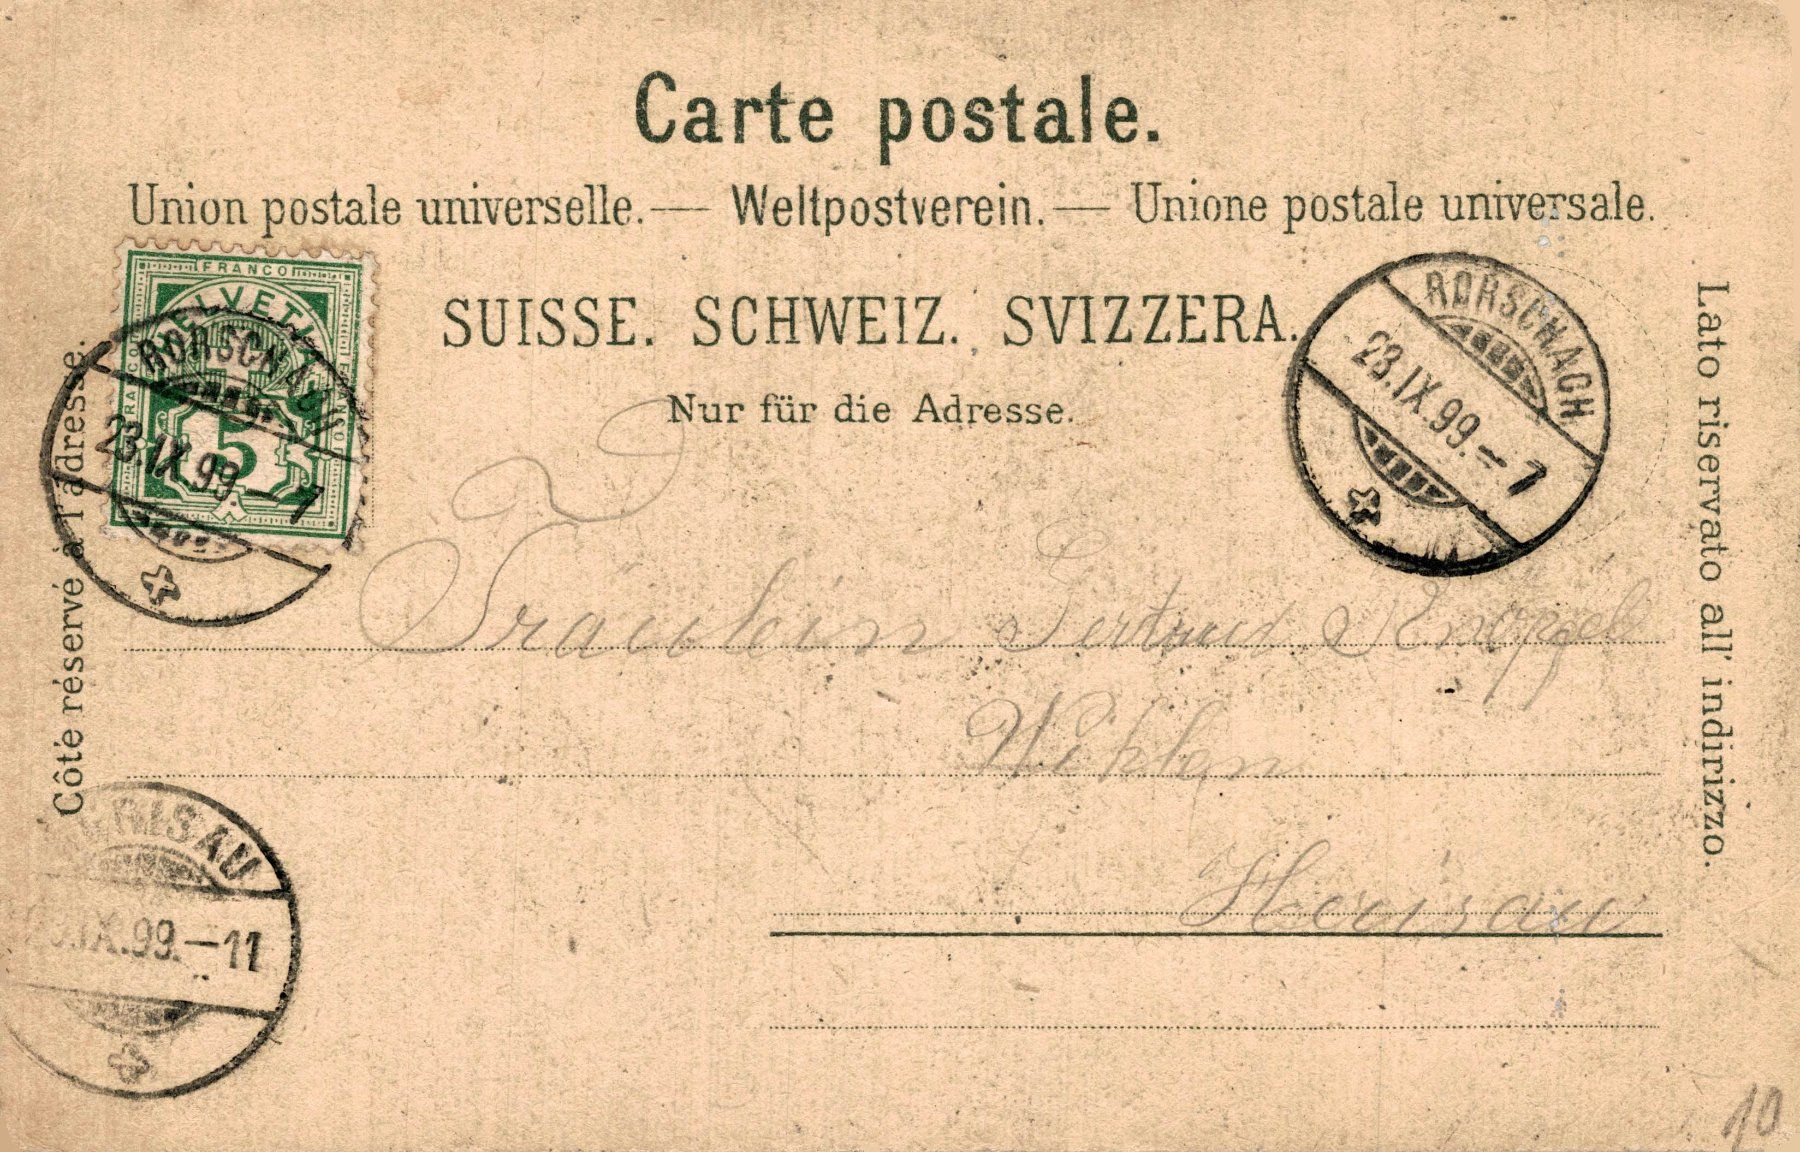 Carte postale.
Union postale universelle. — Weltpostverein. — Unione postale universale.
SUISSE. SCHWEIZ. SVIZZERA.
Nur für die Adresse.
Côté réservé à l'adresse.
Lato riservato all' indirizzo.
FRANCO
HELVETIA
FRANCO
FRANCO
5
RORSCHACH
23.IX.99.–7
RORSCHACH
23.IX.99.–7
Fräulein Gertrud Knöpfel
Wihlen
Herisau
HERISAU
23.IX.99.–11
10